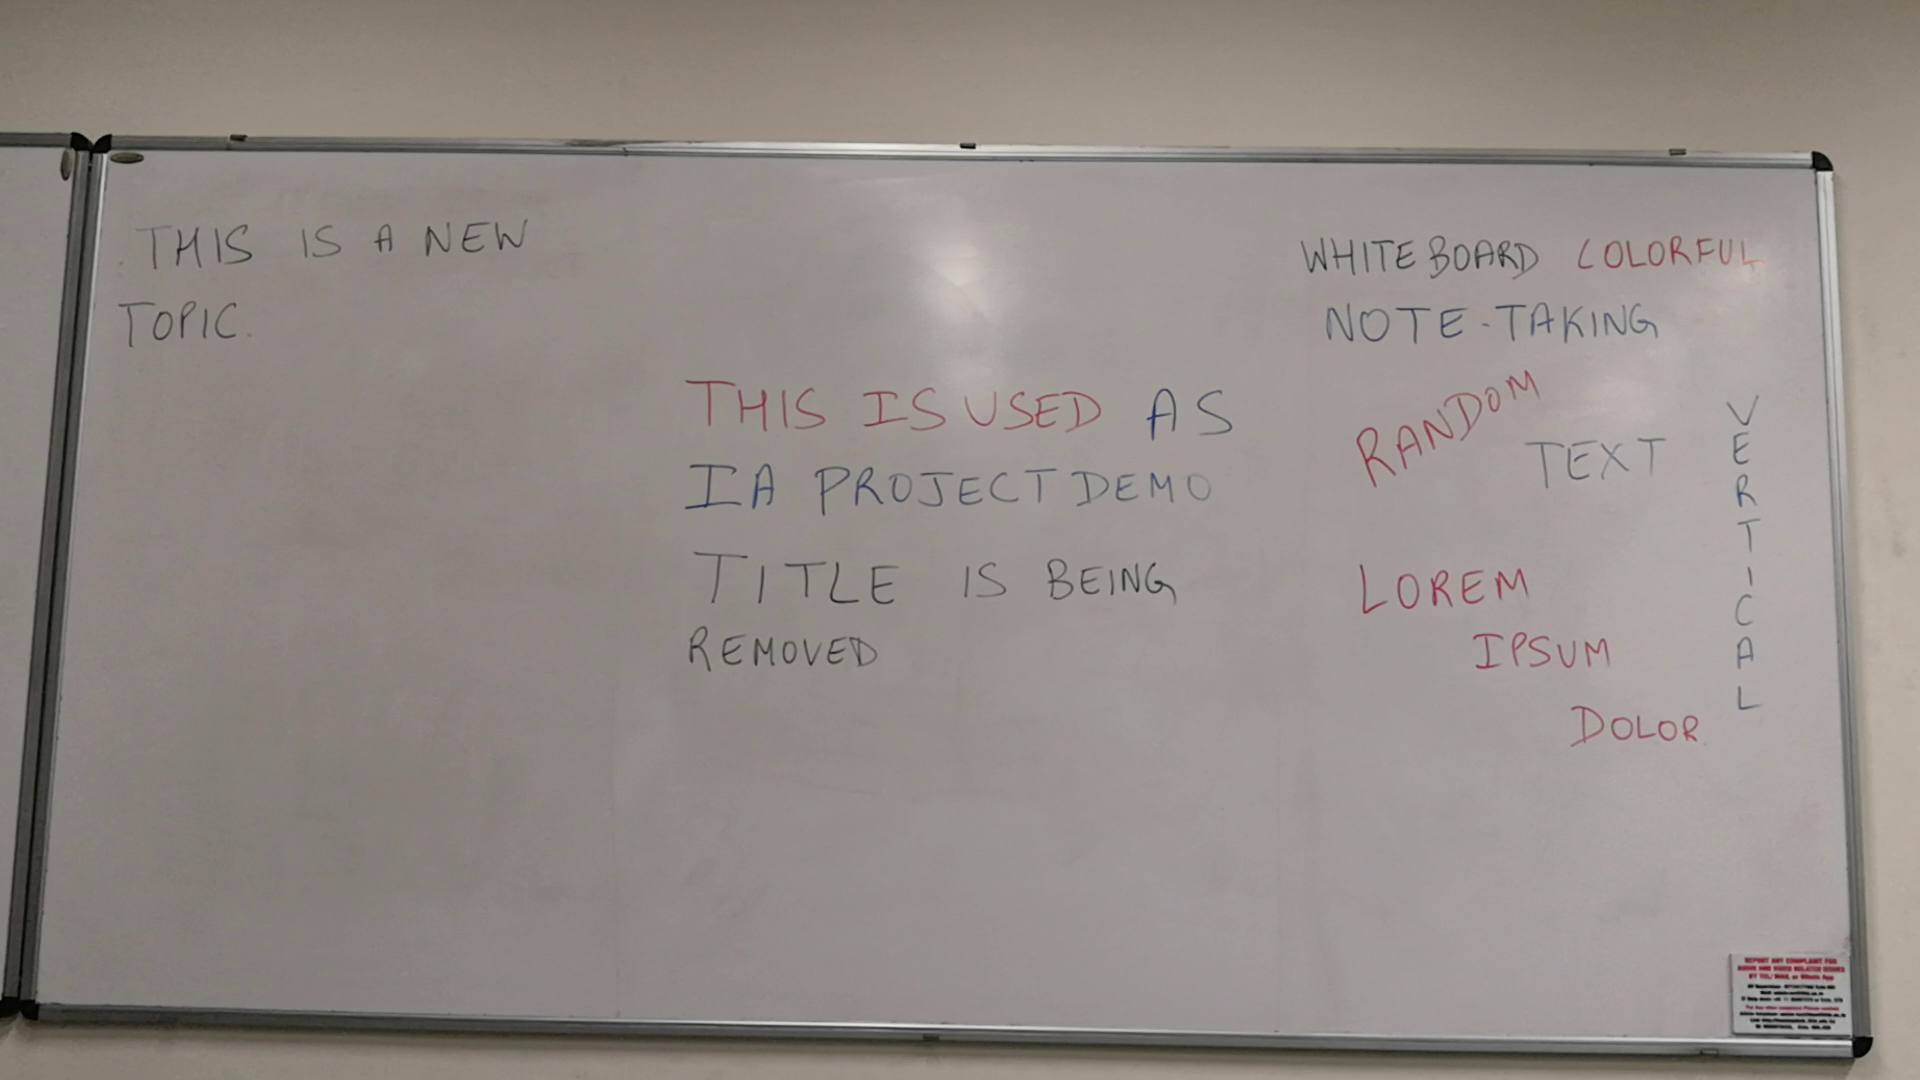 THIS IS A NEW
TOPIC.
THIS IS USED AS
IA PROJECT DEMO
TITLE IS BEING
REMOVED
WHITEBOARD COLORFUL
NOTE-TAKING
RANDOM
TEXT
LOREM
IPSUM
DOLOR
VERTICAL
REPORT ANY COMPLAINT FOR
AUDIO AND VIDEO RELATED ISSUES